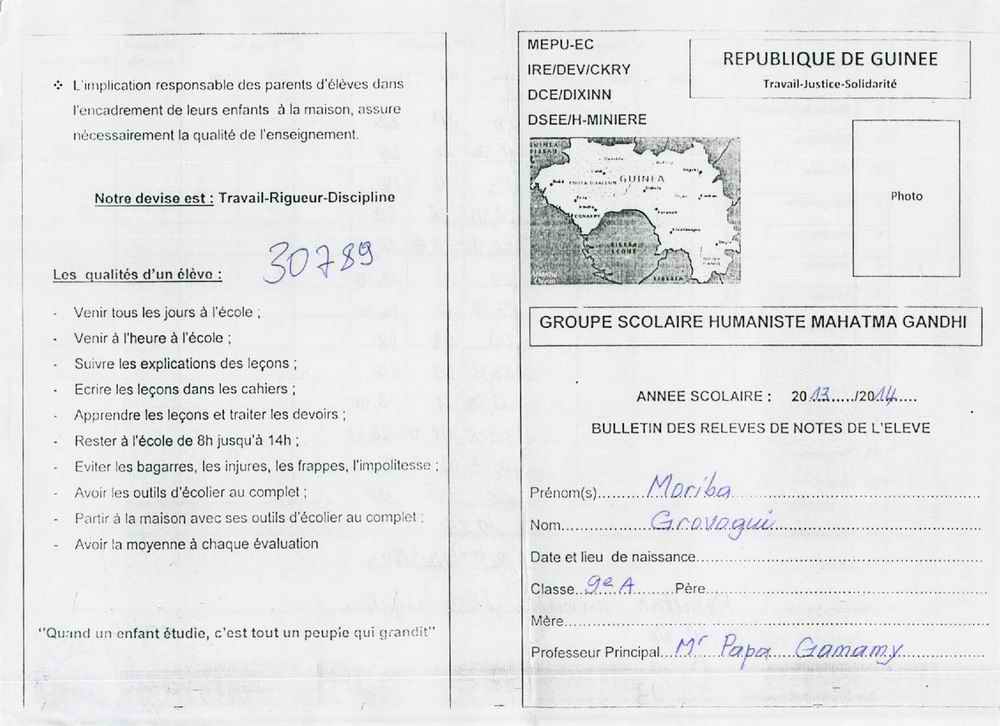 ❖ L'implication responsable des parents d'élèves dans
l'encadrement de leurs enfants à la maison, assure
nécessairement la qualité de l'enseignement.
Notre devise est : Travail-Rigueur-Discipline
30789
Les qualités d'un élève :
- Venir tous les jours à l'école ;
- Venir à l'heure à l'école ;
- Suivre les explications des leçons ;
- Ecrire les leçons dans les cahiers ;
- Apprendre les leçons et traiter les devoirs ;
- Rester à l'école de 8h jusqu'à 14h ;
- Eviter les bagarres, les injures, les frappes, l'impolitesse ;
- Avoir les outils d'écolier au complet ;
- Partir à la maison avec ses outils d'écolier au complet ;
- Avoir la moyenne à chaque évaluation
"Quand un enfant étudie, c'est tout un peuple qui grandit"
MEPU-EC
IRE/DEV/CKRY
DCE/DIXINN
DSEE/H-MINIERE
REPUBLIQUE DE GUINEE
Travail-Justice-Solidarité
GUINEA
Photo
GROUPE SCOLAIRE HUMANISTE MAHATMA GANDHI
ANNEE SCOLAIRE : 2013/2014
BULLETIN DES RELEVES DE NOTES DE L'ELEVE
Prénom(s) Moriba
Nom Grovogui
Date et lieu de naissance
Classe 9e A Père
Mère
Professeur Principal Mr Papa Gamamy